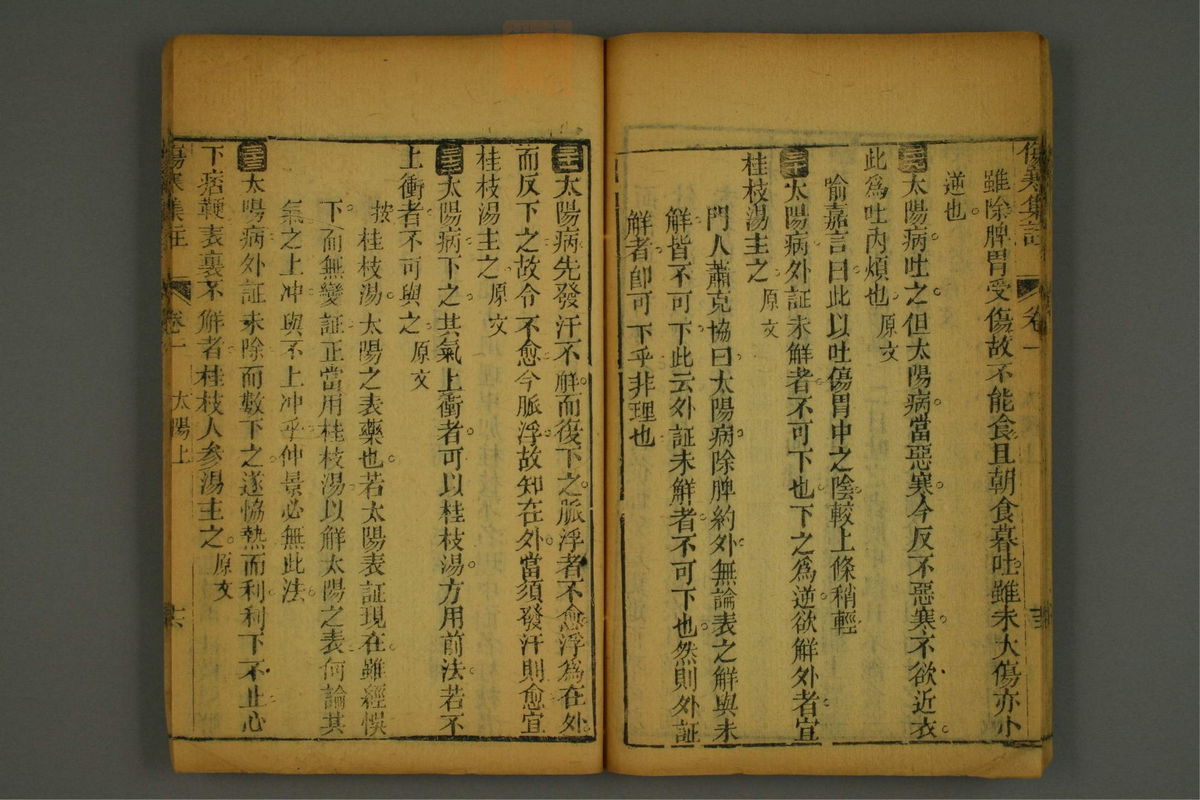 傷寒集註 卷一
雖除脾胃受傷故不能食且朝食暮吐雖未大傷亦小
逆也
太陽病吐之但太陽病當惡寒今反不惡寒不欲近衣
此為吐內煩也 原文
喻嘉言曰此以吐傷胃中之陰較上條稍輕
三十 太陽病外証未解者不可下也下之為逆欲解外者宜
桂枝湯主之 原文
門人蕭克協曰太陽病除脾約外無論表之解與未
解皆不可下此云外証未解者不可下也然則外証
解者即可下乎非理也
三十一 太陽病先發汗不解而復下之脈浮者不愈浮為在外
而反下之故令不愈今脈浮故知在外當須發汗則愈宜
桂枝湯主之 原文
三十二 太陽病下之其氣上衝者可以桂枝湯方用前法若不
上衝者不可與之 原文
按桂枝湯太陽之表藥也若太陽表証現在雖經悞
下而無變証正當用桂枝湯以解太陽之表何論其
氣之上冲與不上冲乎仲景必無此法
三十三 太陽病外証未除而數下之遂恊熱而利利下不止心
下痞鞕表裏不解者桂枝人參湯主之 原文
傷寒集註 卷一 太陽上 六